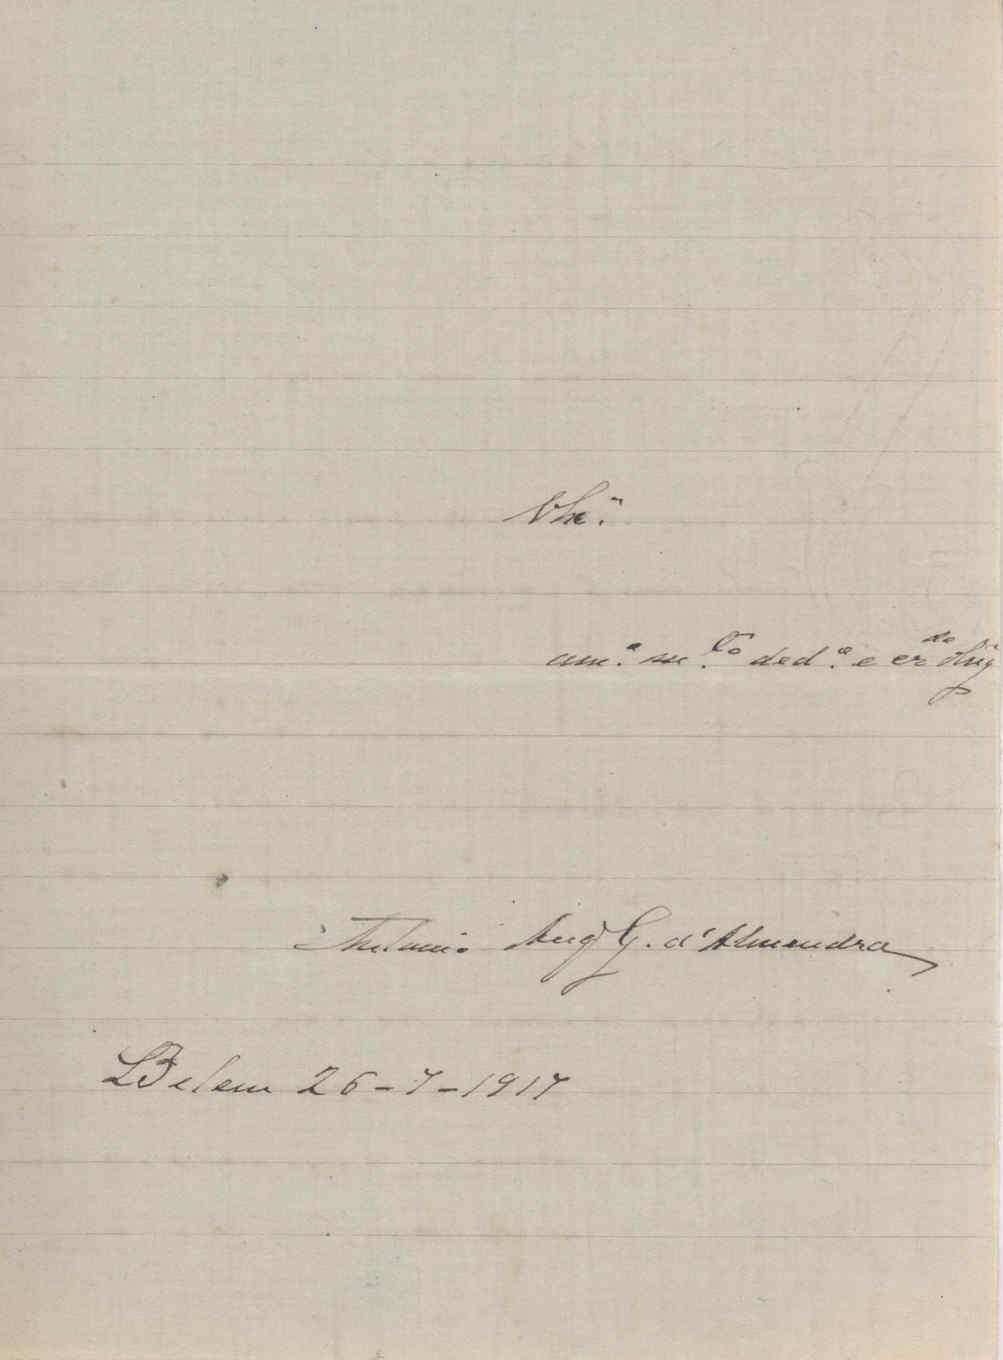 am.º m.to ded.º e cr.do obg
Antonio Aug G. d'Almendra
Belem 26-7-1917